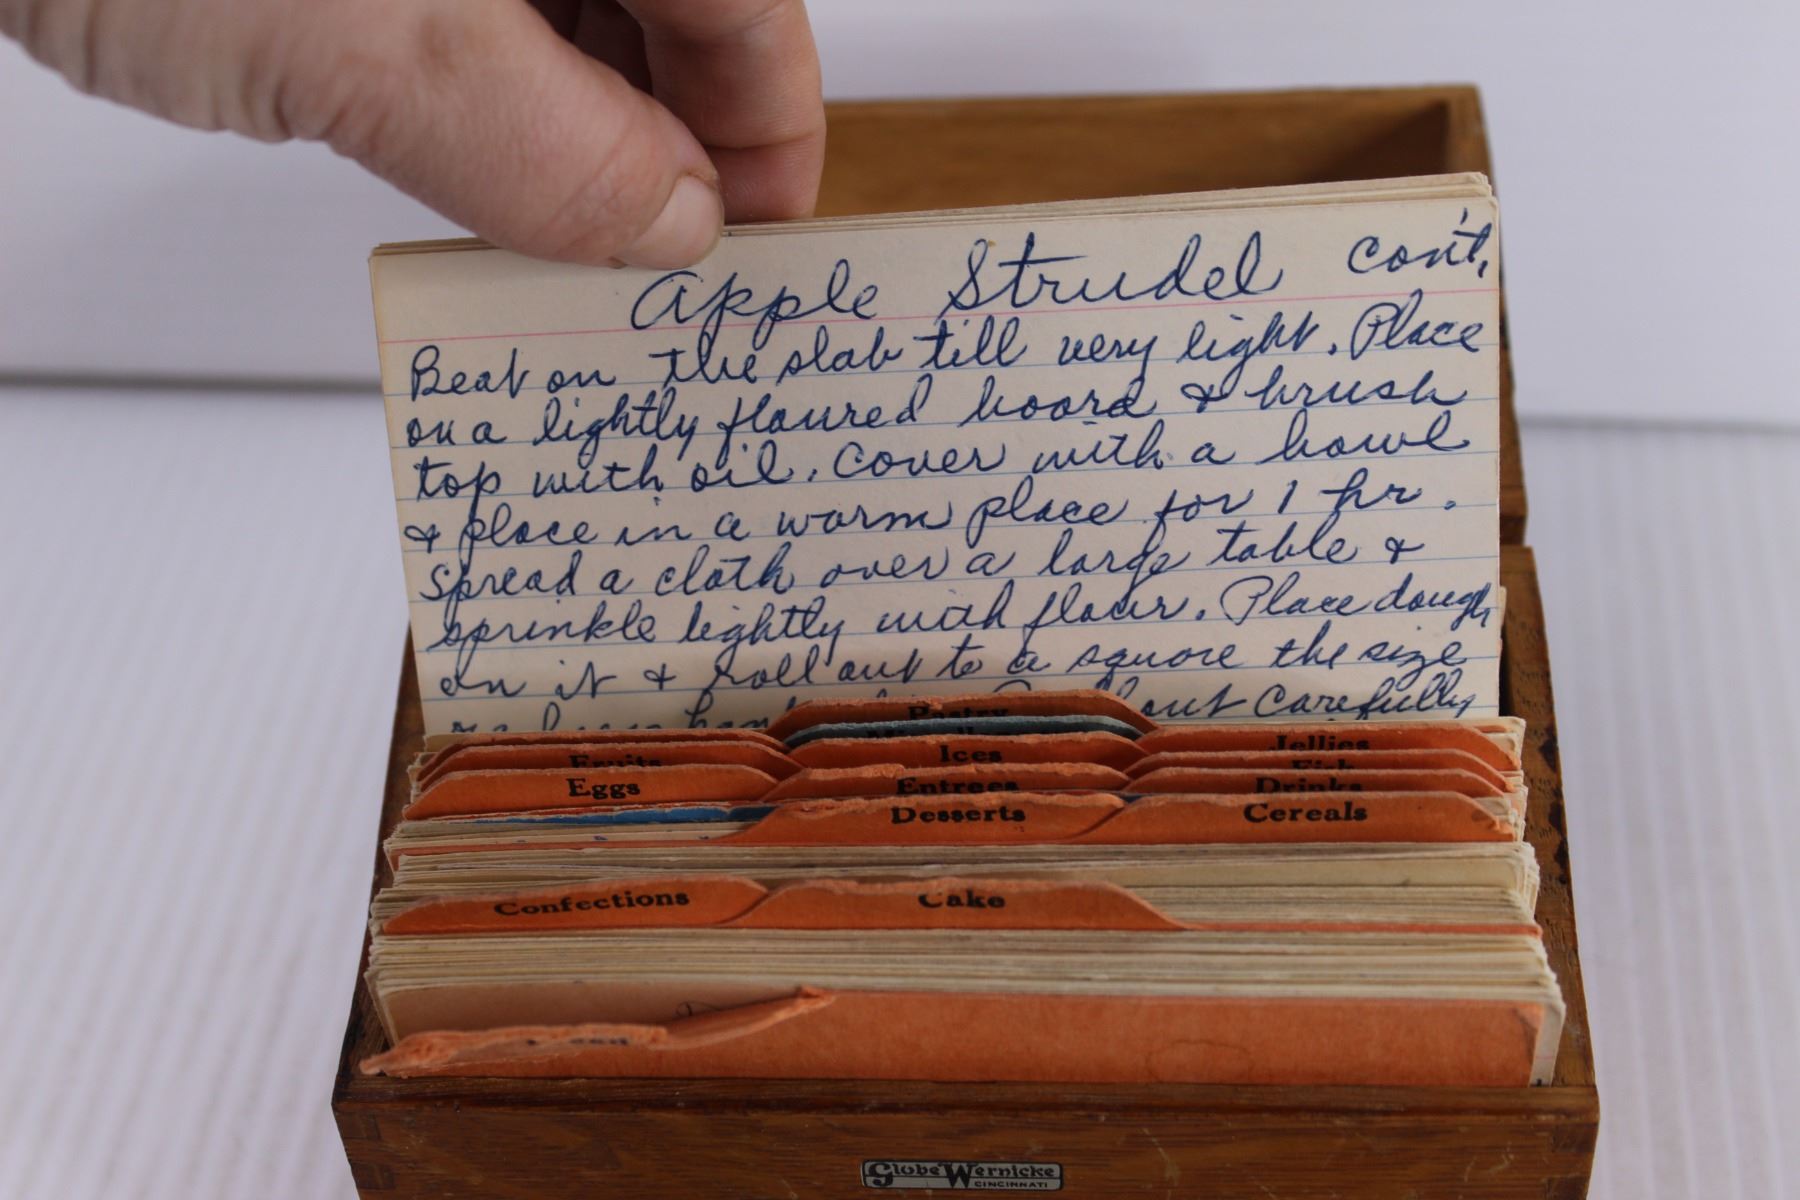 Apple Strudel con't.
Beat on the slab till very light. Place
on a lightly floured board & brush
top with oil. Cover with a bowl
& place in a warm place for 1 hr.
Spread a cloth over a large table &
sprinkle lightly with flour. Place dough
on it & roll out to a square the size
out carefully
Pastry
Ices
Jellies
Fruits
Fish
Eggs
Entrees
Drinks
Desserts
Cereals
Confections
Cake
Globe Wernicke
CINCINNATI